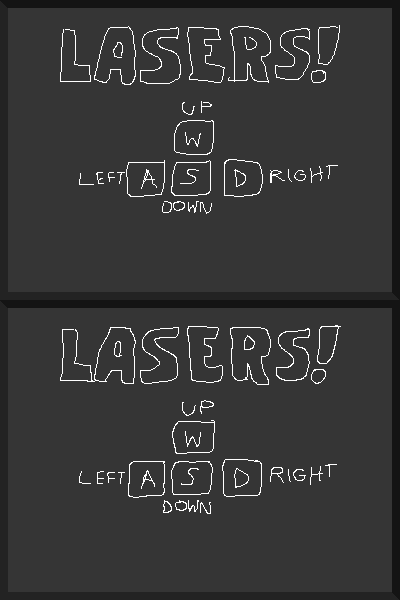 LASERS!
UP
W
LEFT A S D RIGHT
DOWN
LASERS!
UP
W
LEFT A S D RIGHT
DOWN